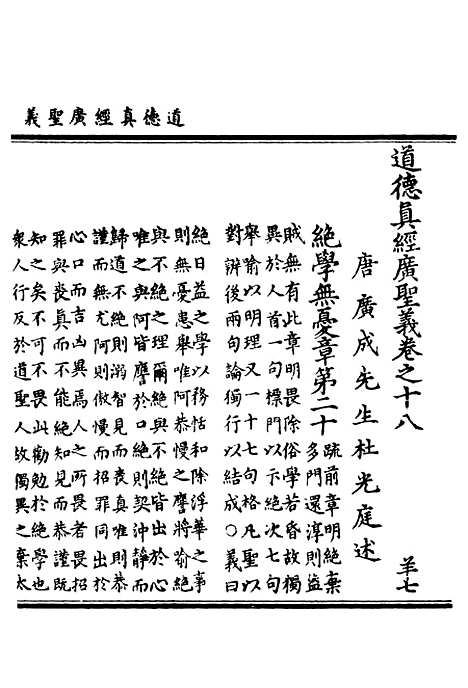 道德真經廣聖義
道德真經廣聖義卷之十八 羊七
唐廣成先生杜光庭述
絕學無憂章第二十 疏前章明絕棄
多門還淳則盜
賊無有此章明畏除俗學若昏故獨
異於人首一句標門以示絕次七句
舉喻以明理又一十七句格凡聖以
對辨後兩句論獨行以結成○義曰
絕日益之學以務恬和除浮華之事
則無憂患舉唯阿恭慢之譍將喻絕
與不絕之理爾絕與不絕皆出於心
唯之與阿皆譍於口絕則契沖靜而
歸道不絕則溺智見而喪真唯則恭
謹而無尤阿則傲慢而招罪同出於
心口而吉凶異焉人之所畏者畏招
罪與喪真而不能絕知見而恭謹既
知之矣不可不畏此勸勉於絕學也
眾人行反於道聖人故獨異之棄太